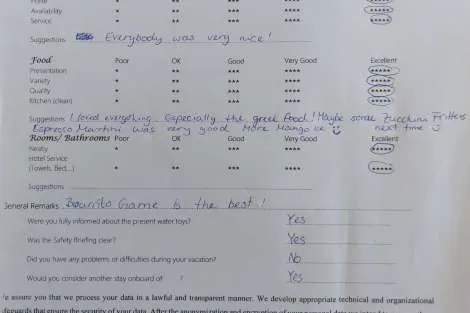 Availability * ** *** **** *****
Service * ** *** **** *****
Suggestions Everybody was very nice!
Food Poor OK Good Very Good Excellent
Presentation * ** *** **** *****
Variety * ** *** **** *****
Quality * ** *** **** *****
Kitchen (clean) * ** *** **** *****
Suggestions I loved everything. Especially the greek food! Maybe some Zucchini Fritters
Espresso Martini was very good More Mango ice next time
Rooms/Bathrooms Poor OK Good Very Good Excellent
Neatly * ** *** **** *****
Hotel Service
(Towels, Bed,...) * ** *** **** *****
Suggestions
General Remarks Game is the best!
Were you fully informed about the present water toys? Yes
Was the Safety Briefing clear? Yes
Did you have any problems or difficulties during your vacation? No
Would you consider another stay onboard of ? Yes
We assure you that we process your data in a lawful and transparent manner. We develop appropriate technical and organizational
safeguards that ensure the security of your data. After the anonymization and encryption of your personal data